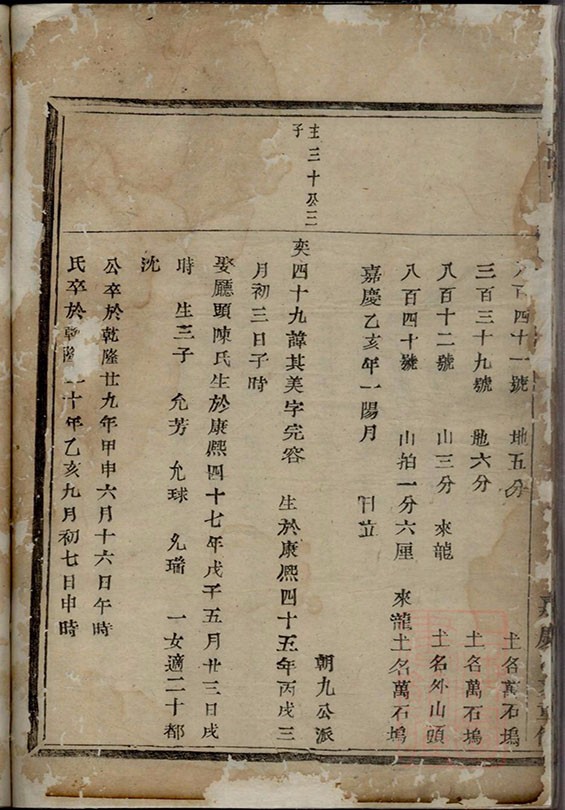 八百四十一號 地五分 土名萬石塢
三百三十九號 地六分 土名萬石塢
八百十二號 山三分 來龍 土名外山頭
八百四十號 山拍一分六厘 來龍 土名萬石塢
嘉慶乙亥年一陽月 日立
朝九公派
圭三十公三
子
奕四十九諱其美字完容 生於康熙四十五年丙戌三
月初三日子時
娶廳頭陳氏生於康熙四十七年戊子五月廿三日戌
時 生三子 允芳 允球 允璠 一女適二十都
沈
公卒於乾隆廿九年甲申六月十六日午時
氏卒於乾隆二十年乙亥九月初七日申時
嘉慶